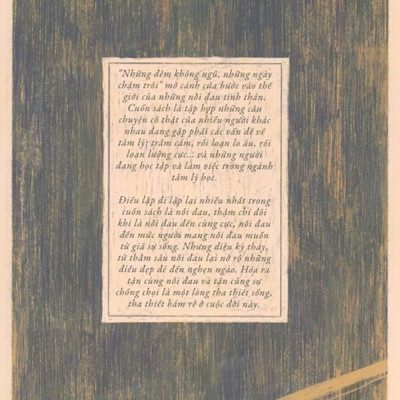 "Những đêm không ngủ, những ngày
chậm trôi" mở cánh cửa bước vào thế
giới của những nỗi đau tinh thần.
Cuốn sách là tập hợp những câu
chuyện có thật của nhiều người khác
nhau đang gặp phải các vấn đề về
tâm lý: trầm cảm, rối loạn lo âu, rối
loạn lưỡng cực... và những người
đang học tập và làm việc trong ngành
tâm lý học.
Điều lặp đi lặp lại nhiều nhất trong
cuốn sách là nỗi đau, thậm chí đôi
khi là nỗi đau đến cùng cực, nỗi đau
đến mức người mang nỗi đau muốn
từ giã sự sống. Nhưng diệu kỳ thay,
từ thẳm sâu nỗi đau lại nở rộ những
điều đẹp đẽ đến nghẹn ngào. Hóa ra
tận cùng nỗi đau và tận cùng sự
chống chọi là một lòng tha thiết sống,
tha thiết bám rễ ở cuộc đời này.